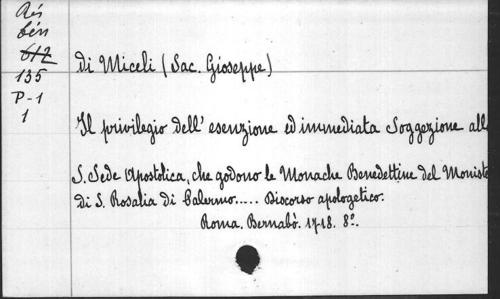 Rés
bén
612
135
P-1
1
di Miceli (Sac. Gioseppe)
Il privilegio dell' esenzione ed immediata soggezione all
S. Sede Apostolica, che godono le Monache Benedettine del Moniste
di S. Rosalia di Palermo..... Discorso apologetico.
Roma. Bernabò. 1718. 8º.